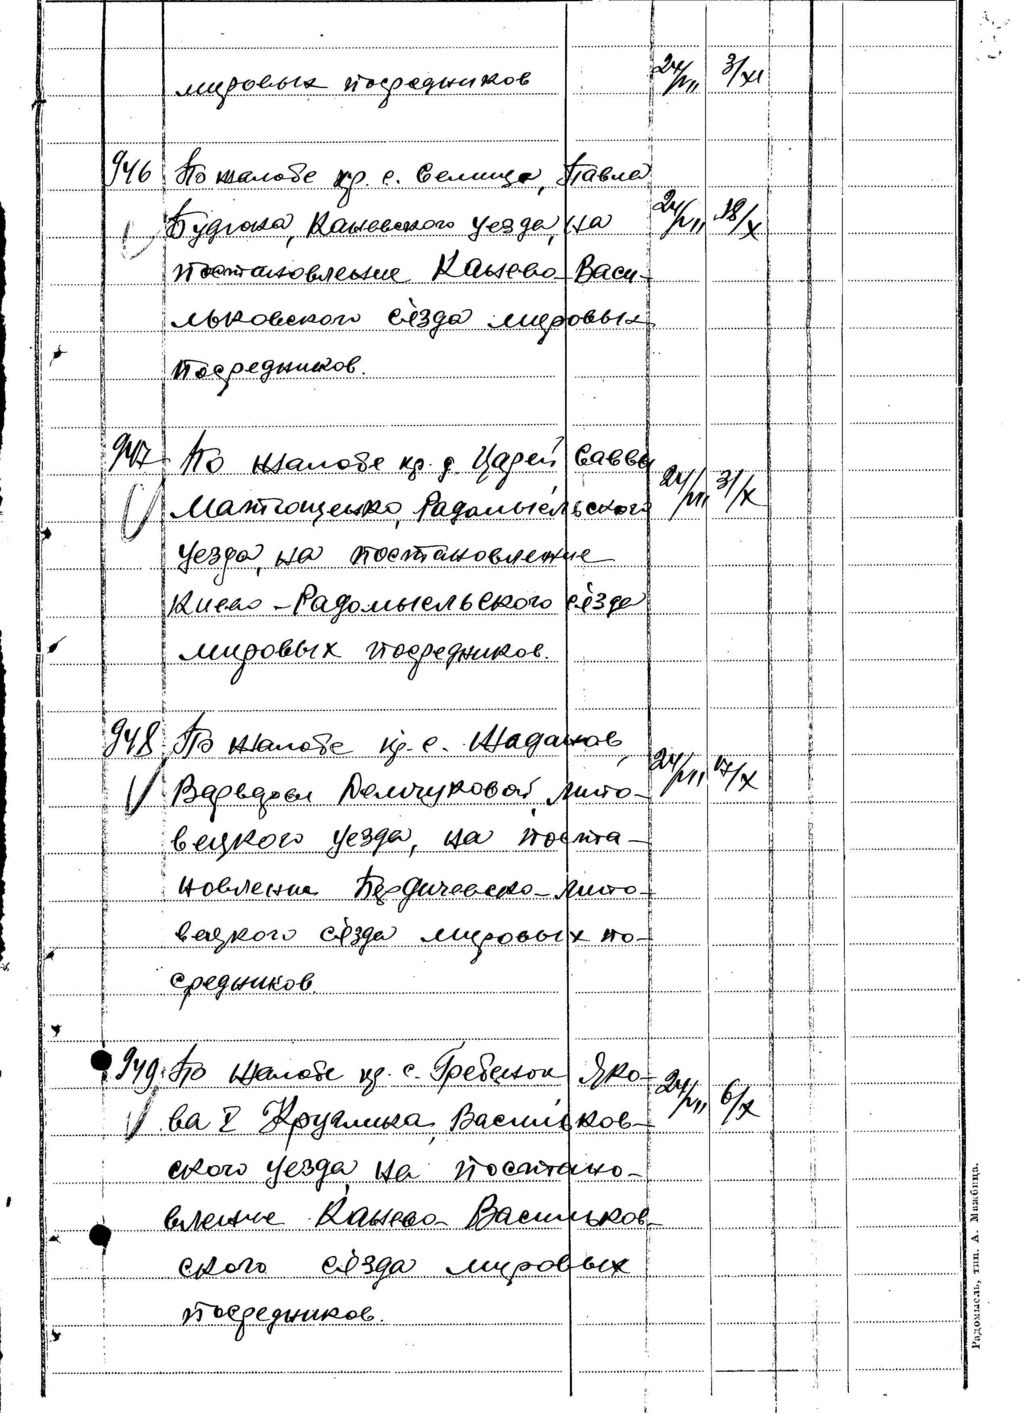 мировых посредников 24/VII 3/XI
946 По жалобе кр. с. Селища, Павла
Будюка, Каневского уезда, на 24/VII 18/X
постановление Канево-Васи-
льковского съезда мировых
посредников.
947 По жалобе кр. д. Царей, Саввы
Матющенко, Радомысльского 24/VII 31/X
уезда, на постановление
Киево-Радомысльского съезда
мировых посредников.
948 По жалобе кр. с.
Варвары Липо- 24/VII 17/X
вецкого уезда, на поста-
новление Бердичевско-Липо-
вецкого съезда мировых по-
средников.
949 По жалобе кр. с. Гребенок Яко- 24/VII 6/X
ва Кругликa, Васильков-
ского уезда, на постано-
вление Канево-Васильков-
ского съезда мировых
посредников.
Радомысль, тип. А. Мижбица.